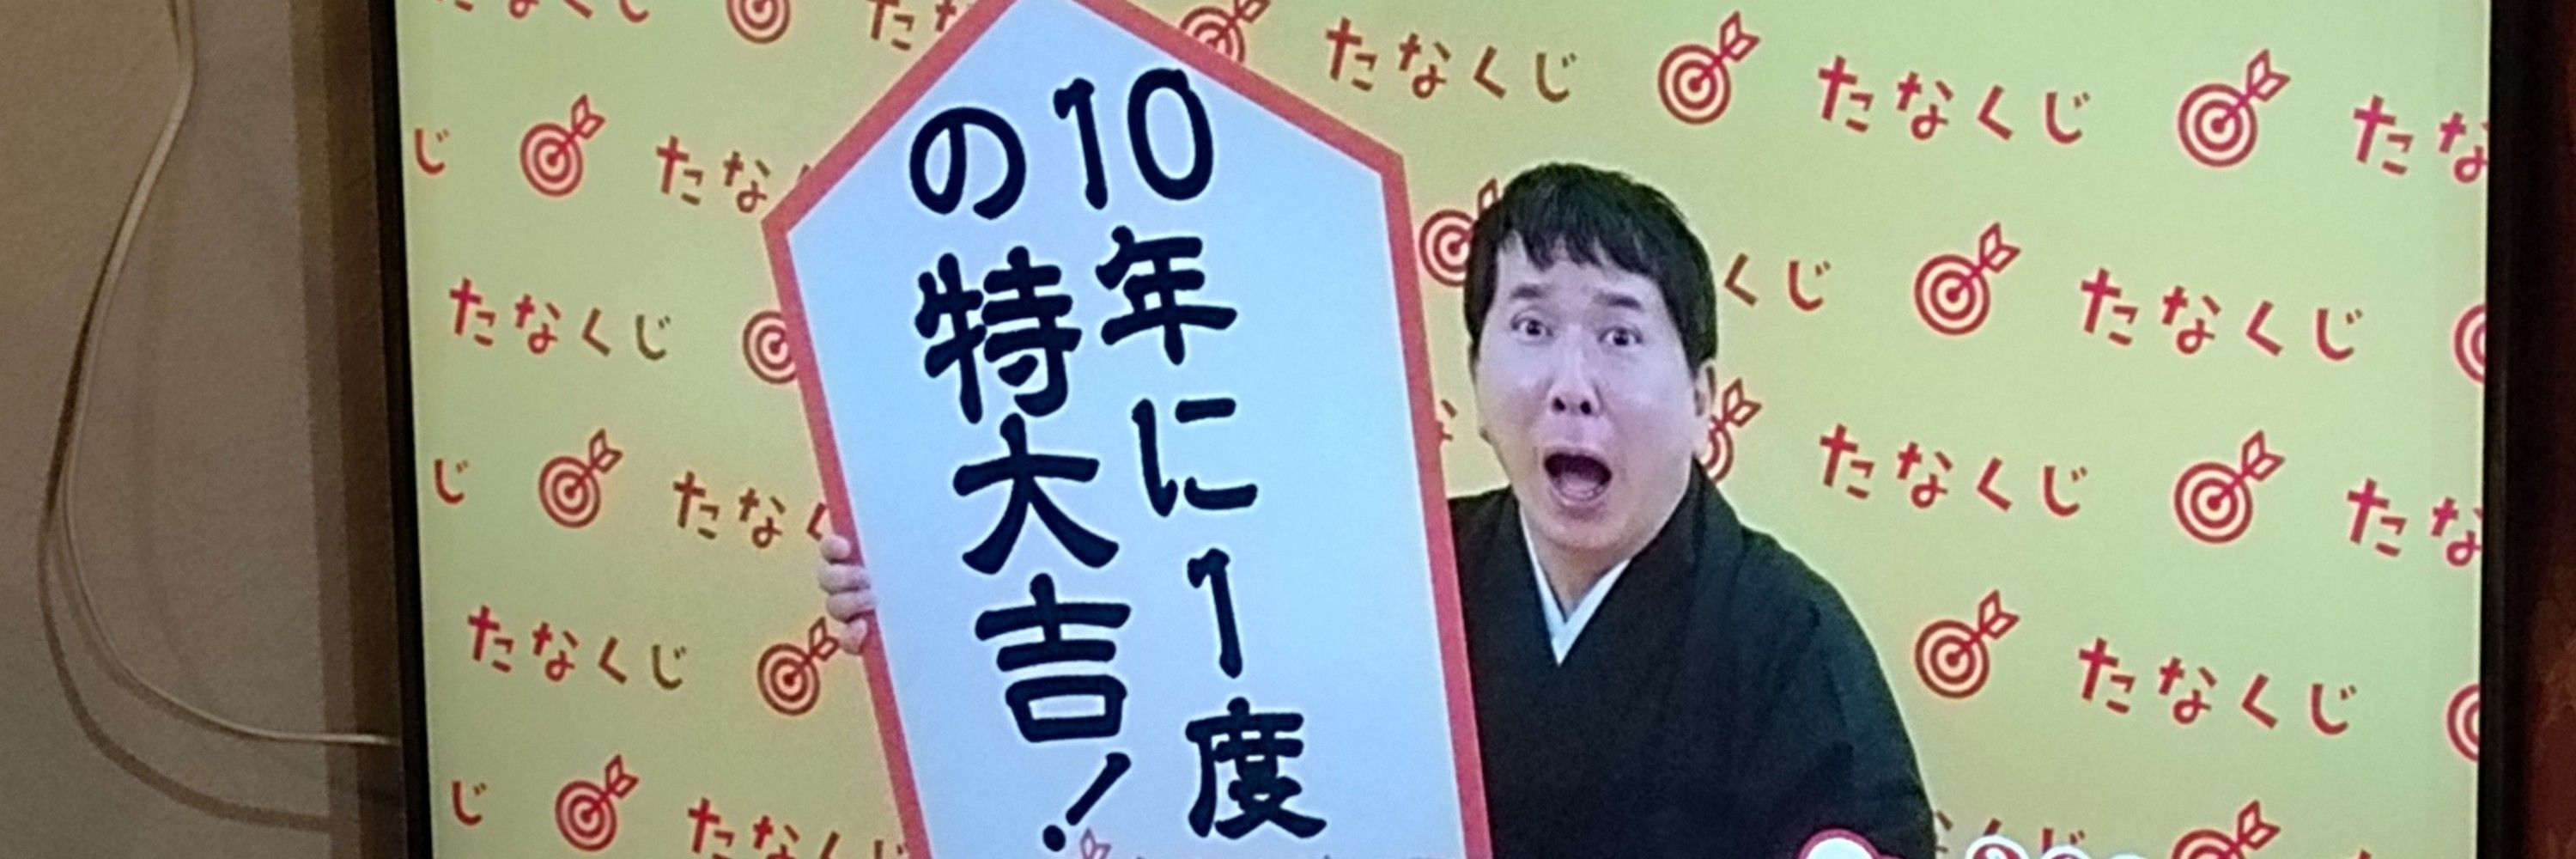 10年に1度
の特大吉!
たなくじ
たなくじ
たなくじ
たなくじ
たなくじ
たなくじ
たなくじ
たなくじ